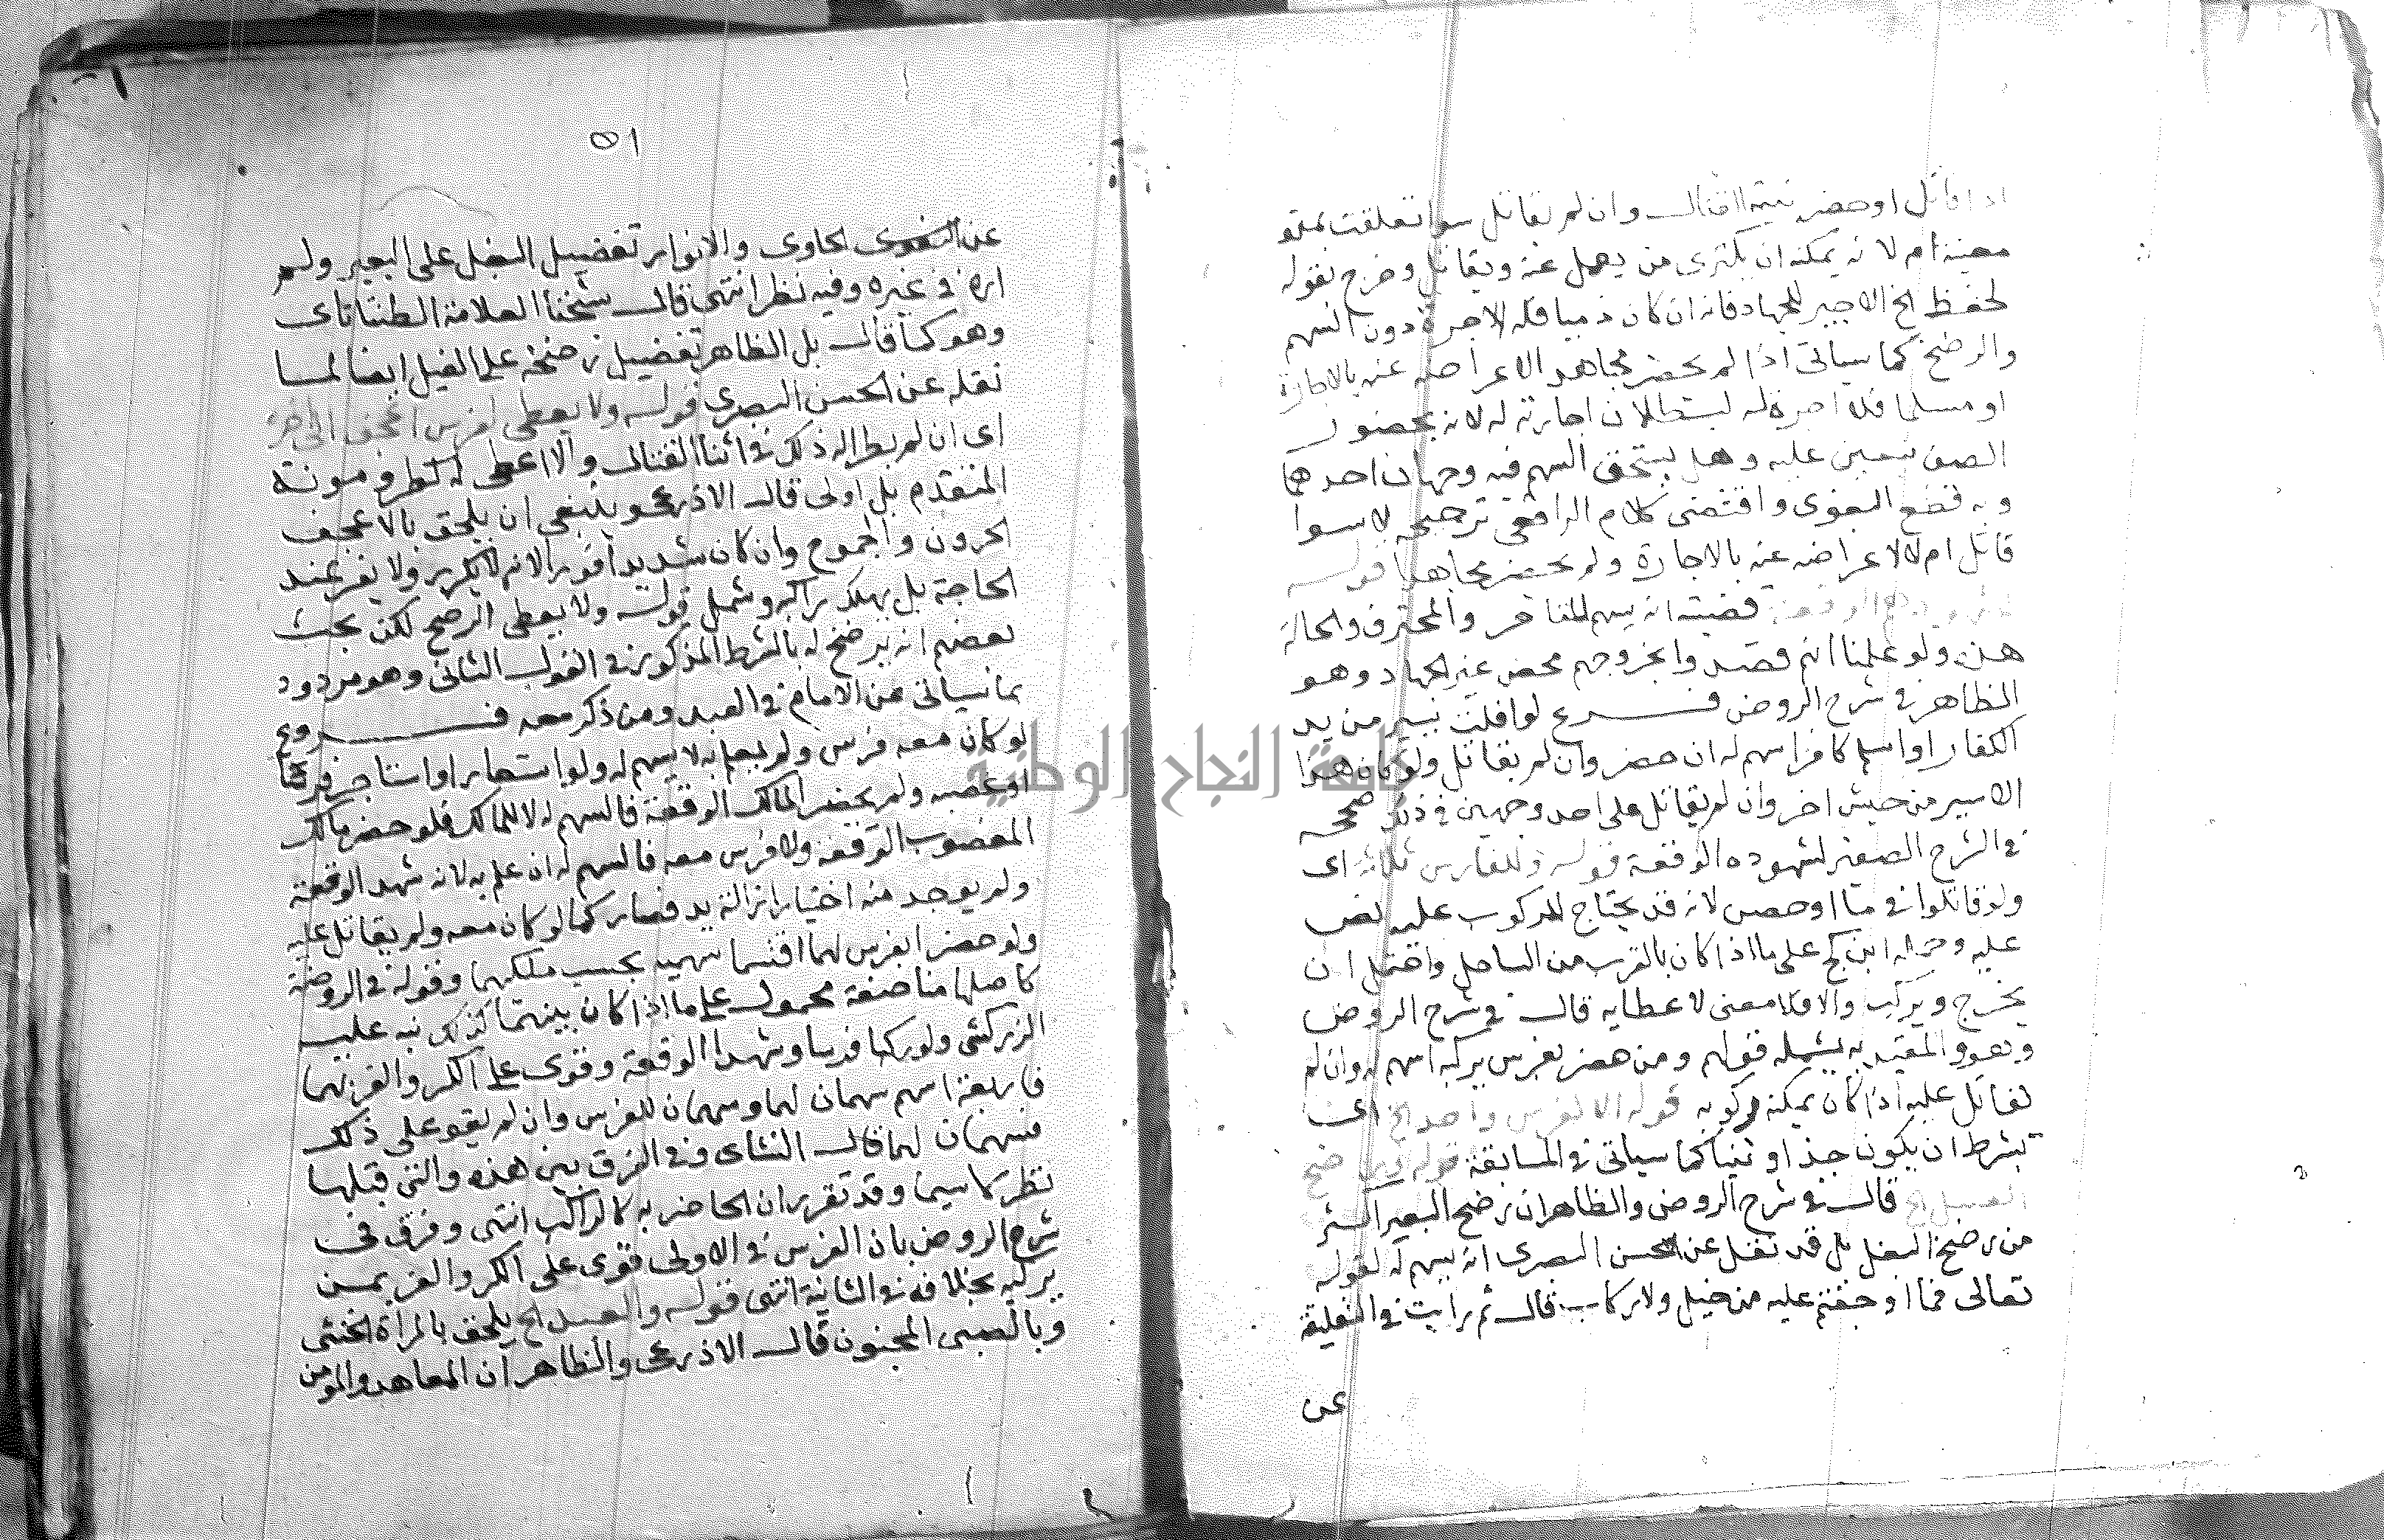 اذا قاتل او حضر بنية القتال وان لم يقاتل سوا تعلقت بمدة
معينة ام لا لانه يمكنه ان يكترى من يعمل عنه ويقاتل وخرج بقوله
لحفظ الخ الاجير للجهاد فانه ان كان ذميا فله الاجرة دون السهم
والرضخ كما سياتى اذا لم يحضر مجاهدا لاعراضه عنه بالاجارة
او مسلما فلا اجرة له لبطلان اجارته له لانه بحضور
الصف يتعين عليه وهل يستحق السهم فيه وجهان احدهما
وبه قطع البغوى واقتضى كلام الرافعى ترجيحه لا سوا
قاتل ام لا لاعراضه عنه بالاجارة ولم يحضر مجاهدا قوله
قضيته انه يسهم للتاجر والمحترف والحالة
هذه ولو علمنا انهم قصدوا بخروجهم محض غير الجهاد وهو
الظاهر فى شرح الروض فرع لو افلت اسير من يد
الكفار او اسلم كافر اسهم له ان حضر وان لم يقاتل ولو كان هذا
الاسير من جيش اخر وان لم يقاتل على احد وجهين فى ذلك صححه
فى الشرح الصغير لشهوده الوقعة قوله وللفارس ثلاثة اى
ولو قاتلوا فى ما او حصن لانه قد يحتاج للركوب عليه نص
عليه وحمله ابن كج على ما اذا كان بالقرب من الساحل واحتمل ان
يخرج ويركب والا فلا معنى لاعطايه قال فى شرح الروض
وهو والمقيد به يشمله قولهم ومن حضر بفرس يركبه اسهم له وان لم
يقاتل عليه اذا كان يمكنه ركوبه قوله الا لفرس واحد الخ اى
بشرط ان يكون جذعا او ثنيا كما سياتى فى المسابقة قوله ويرضخ
الخ قال فى شرح الروض والظاهر ان رضخ البعير اكثر
من رضخ البغل بل قد نقل عن الحسن البصرى انه يسهم له لقوله
تعالى فما اوجفتم عليه من خيل ولا ركاب قال ثم رايت فى التعليقة
عن
٥١
عن الحاوى والانوار تفضيل البغل على البعير ولم
اره فى غيره وفيه نظر انتهى قال شيخنا العلامة الطنتاتاى
وهو كما قال بل الظاهر تفضيل رضخه على الفيل ايضا لما
نقله عن الحسن البصرى قوله ولا يعطى لفرس اعجف الى اخره
اى ان لم يطرا له ذلك فى اثنا القتال والا اعطى له لطرو موته
المتقدم بل اولى قال الاذرعى وينبغى ان يلحق بالاعجف
الحرون والجموح وان كان شديدا قويا لانه لا يكر ولا يفر عند
الحاجة بل يهلك راكبه وشمل قوله ولا يعطى الرضخ لكن بحث
بعضهم انه يرضخ له بالشرط المذكور فى القول الثانى وهو مردود
بما سياتى عن الامام فى العبد ومن ذكر معه فروع
لو كان معه فرس ولم يعلم به لا يسهم له ولو استعار او استاجر فرسا
او غصبه ولم يحضر المالك الوقعة فالسهم له لا للمالك فلو حضر مالك
المغصوب الوقعة ولا فرس معه فالسهم له ان علم به لانه شهد الوقعة
ولم يوجد منه اختيار ازالة يد فصار كما لو كان معه ولم يقاتل عليه
ولو حضرا بفرس لهما اقتسما سهميه بحسب ملكيهما وقوله فى الروضة
كاصلها مناصفة محمول على ما اذا كان بينهما كذلك نبه عليه
الزركشى ولو ركبا فرسا وشهدا الوقعة وقوى على الكر والفر بهما
فاربعة اسهم سهمان لهما وسهمان للفرس وان لم يقو على ذلك
فسهمان لهما قال النشاى وفى الفرق بين هذه والتى قبلها
نظر لا سيما وقد تقرر ان الحاضر به كالراكب انتهى وفرق فى
شرح الروض بان الفرس فى الاولى قوى على الكر والفر بمن
يركبه بخلافه فى الثانية انتهى قوله والعبد الخ يلحق بالمراة الخنثى
وبالصبى المجنون قال الاذرعى والظاهر ان المعاهد والمومن
جامعة النجاح الوطنية